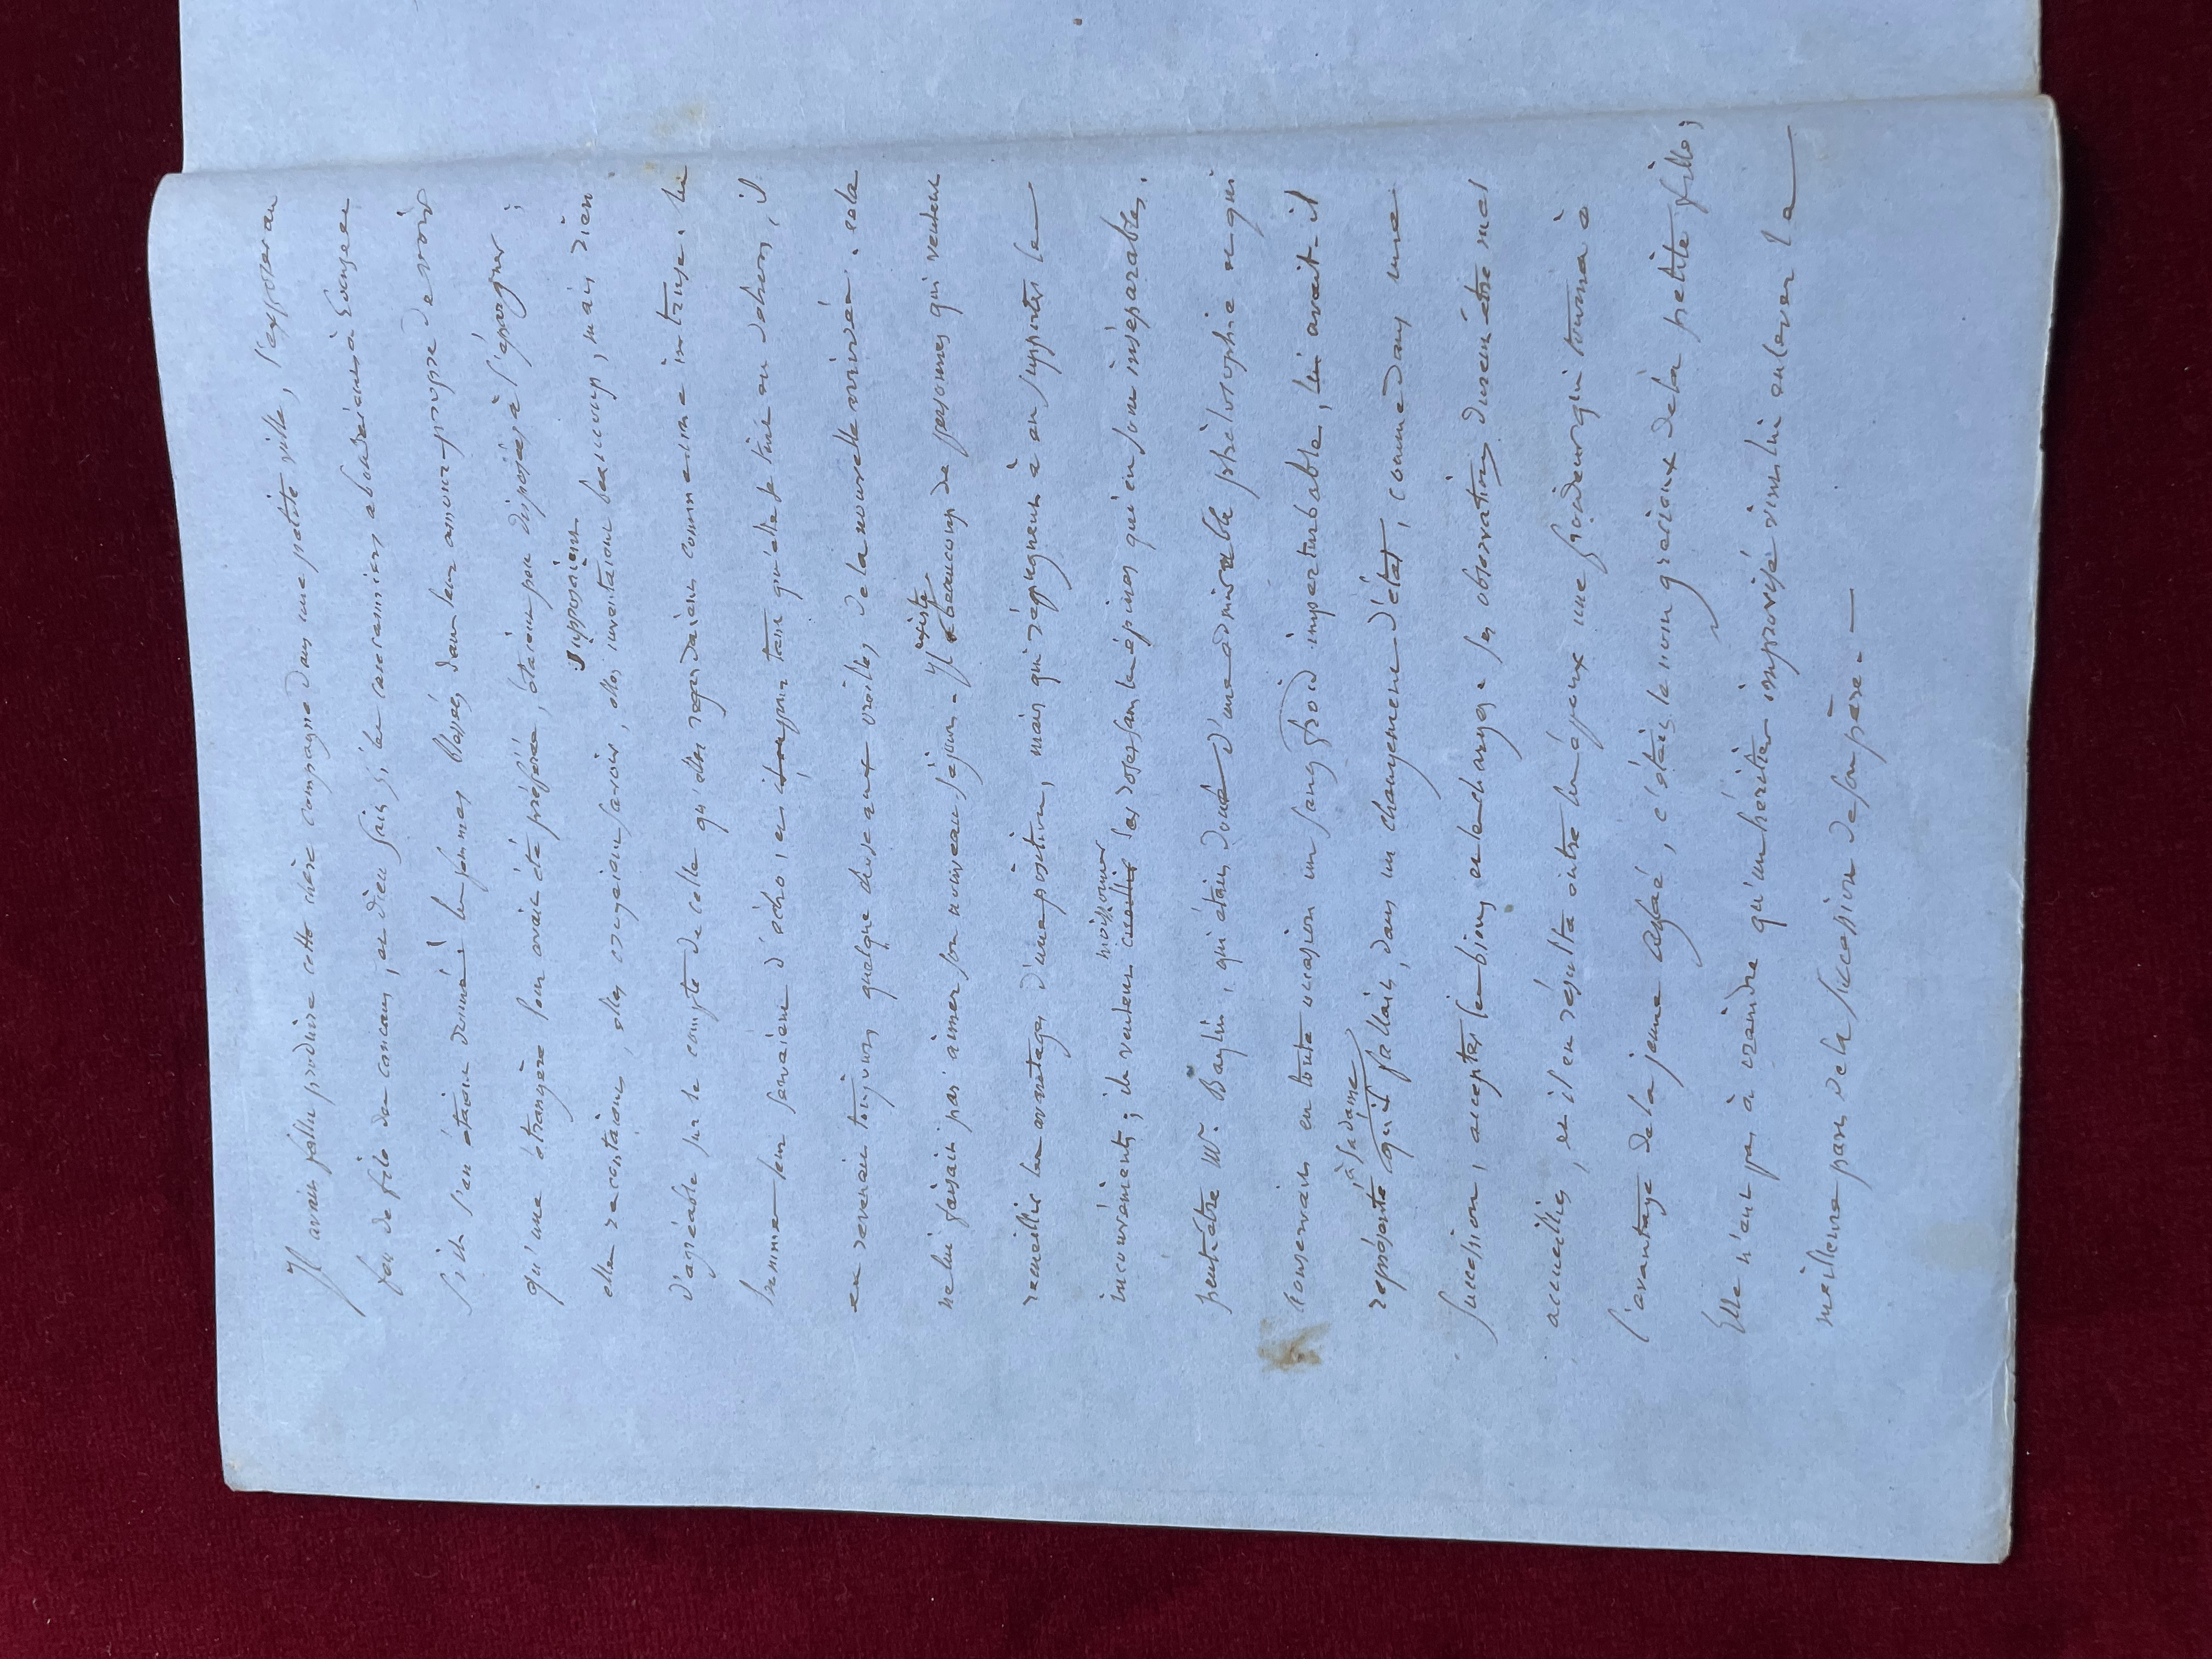 Il avait fallu produire cette chère compagne dans une petite ville, l'exposer au
feu de file des cancans, et Dieu sait si les
s'ils s'en étaient donné! les femmes blessées dans leur amour-propre de voir
qu'une étrangère leur avait été préférée, étaient peu disposées à l'épargner;
supposaient
elles racontaient, elles croyaient savoir, elles inventaient beaucoup, mais rien
d'agréable sur le compte de celle qu'elles regardaient comme une intruse. Les
bonnes leur servaient d'écho, et tant qu'elle fut au dehors, il
en revenait toujours quelque chose aux oreilles de la nouvelle arrivée. cela
ne lui faisait pas aimer son nouveau séjour. Il existe beaucoup de personnes qui veulent
recueillir les avantages d'une position, mais qui répugnent à en supporter les
moissonner
inconvénients; ils veulent cueillir les roses sans les épines qui en sont inséparables.
peut-être Mr. Baglin, qui était doué d'une admirable philosophie et qui
conservait en toute occasion un sang froid imperturbable, lui avait-il
à sa dame
représenté qu'il fallait, dans un changement d'état, comme dans une
succession, accepter les biens et les charges. Ses observations durent être mal
accueillies, et il en résulta entre les époux une froideur qui tourna à
l'avantage de la jeune Aglaé, c'était le nom gracieux de la petite fille;
Elle n'eut pas à craindre qu'un héritier improvisé vînt lui enlever la
meilleure part de la succession de son père. —